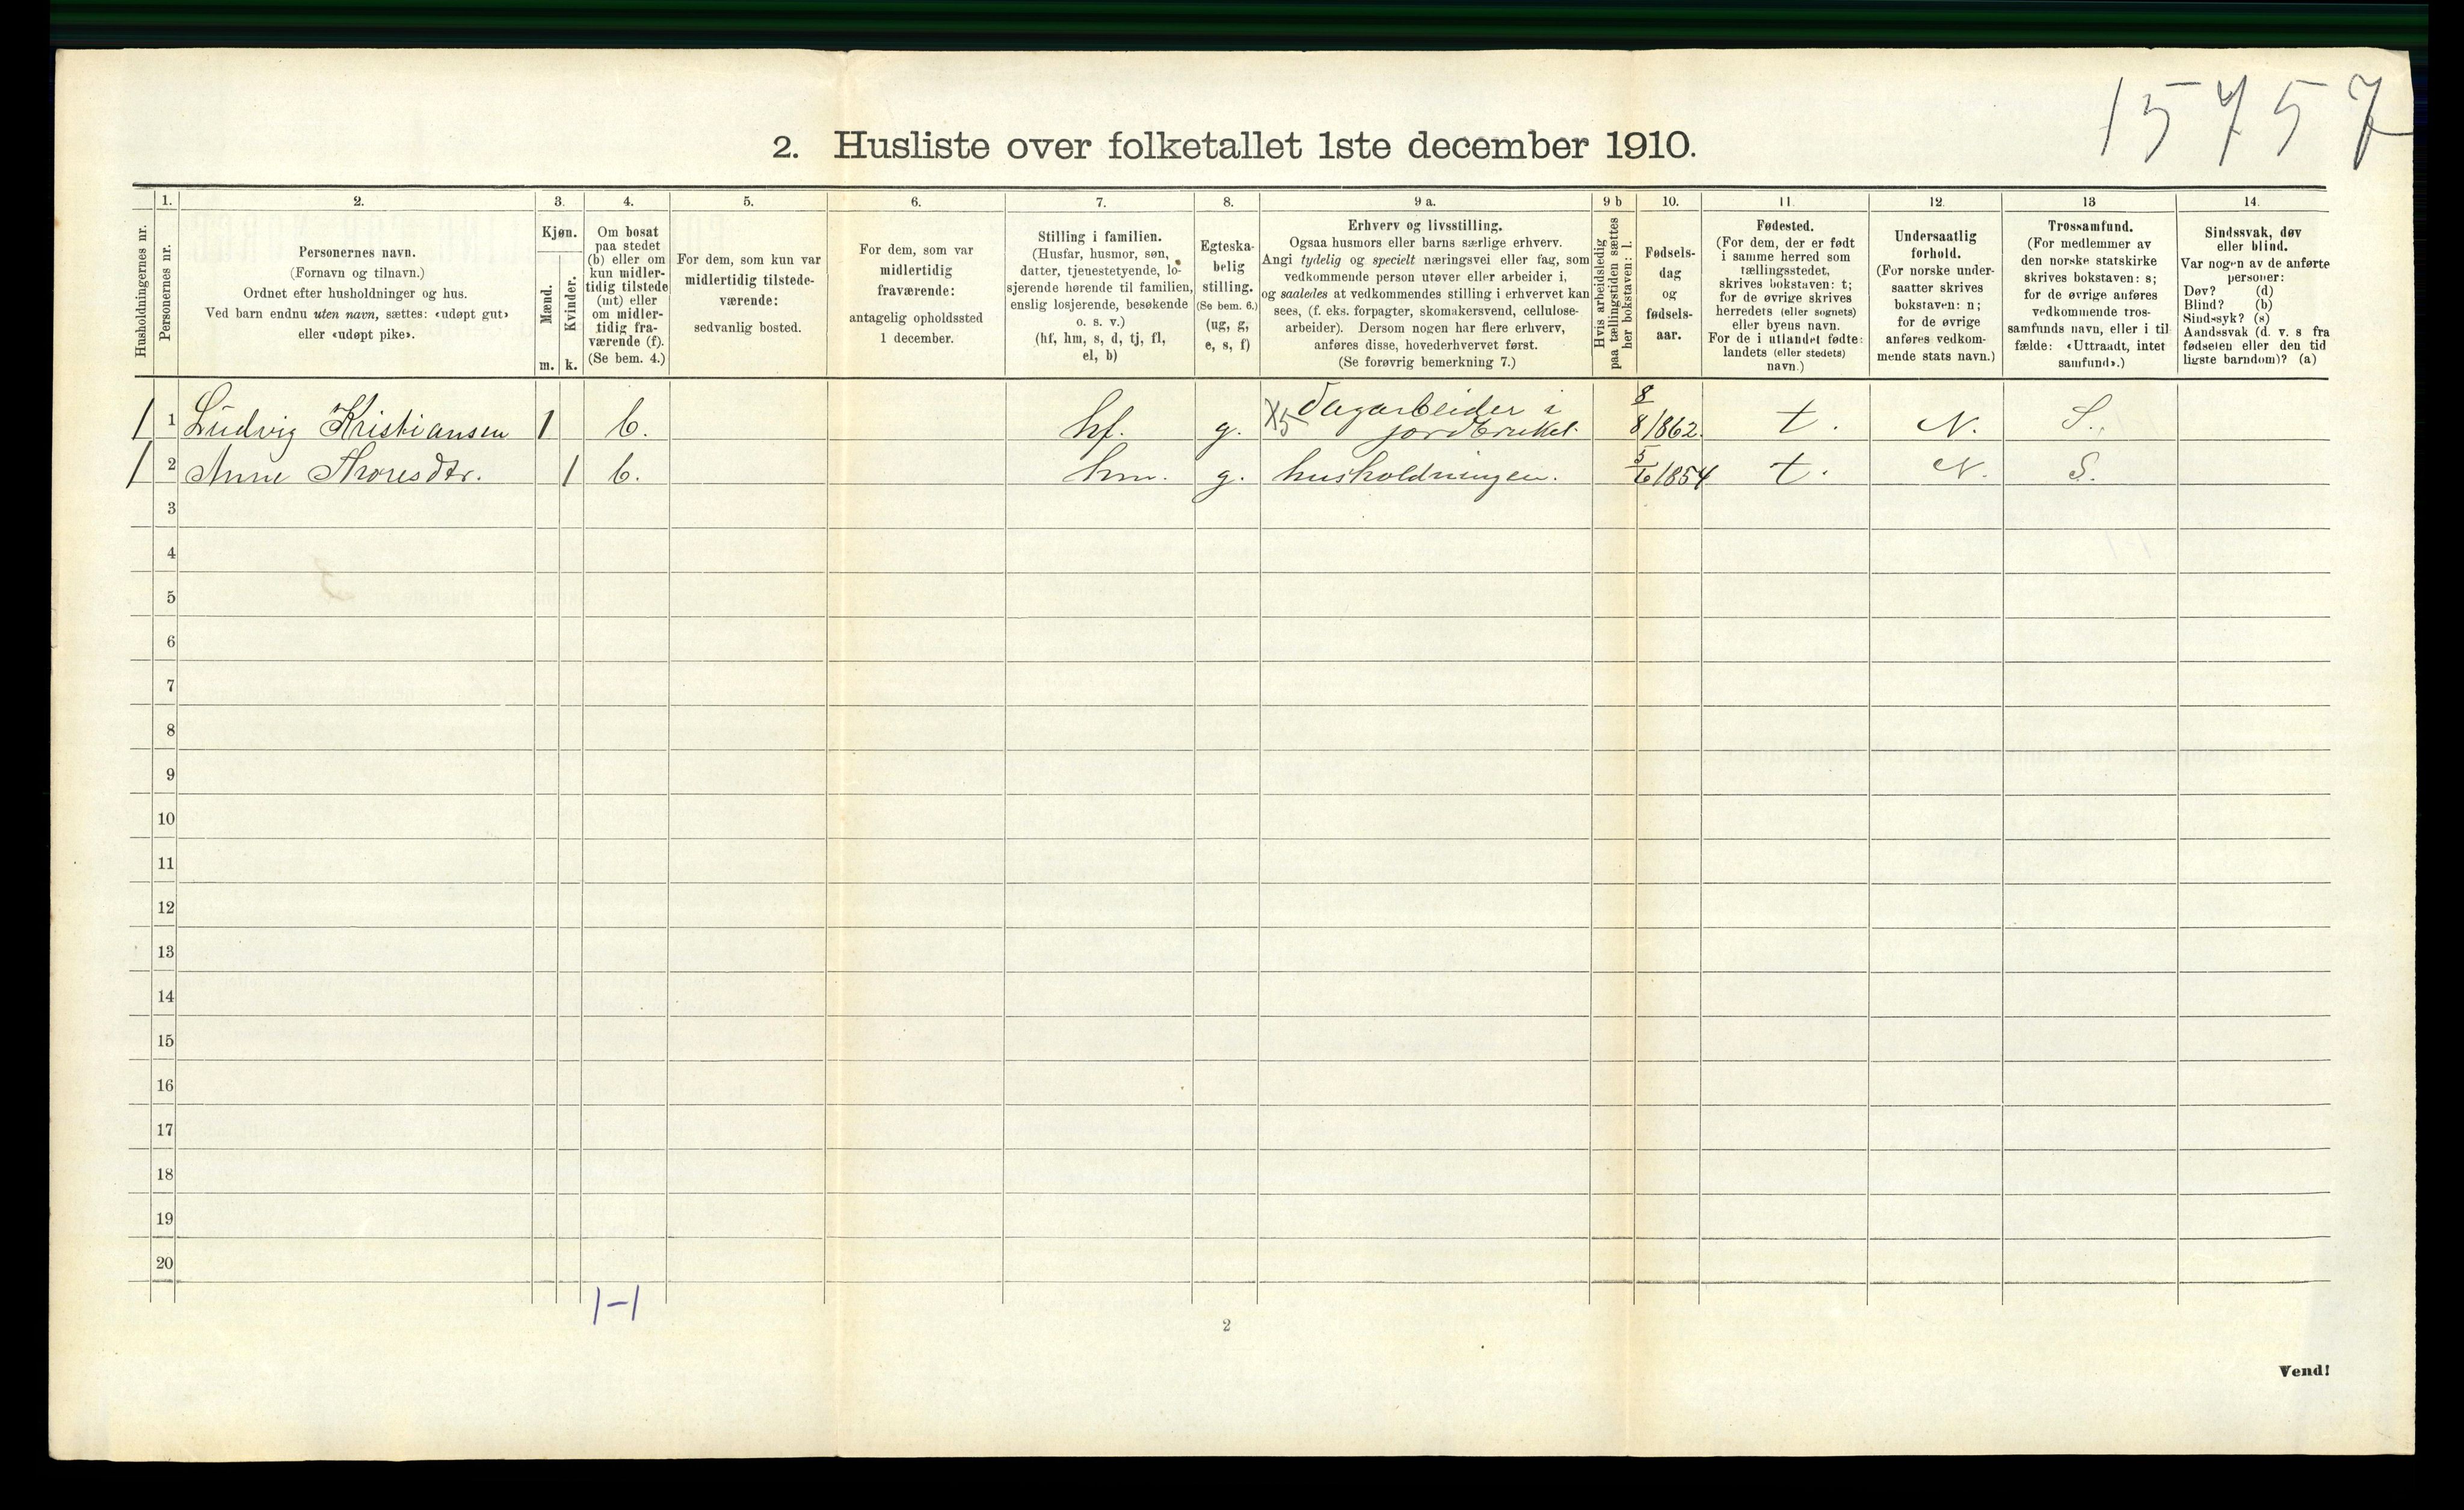 15757
2. Husliste over folketallet 1ste december 1910.
Husholdningernes nr.
1.
Personernes nr.
2.
Personernes navn.
(Fornavn og tilnavn.)
Ordnet efter husholdninger og hus.
Ved barn endnu uten navn, sættes: «udøpt gut»
eller «udøpt pike».
3.
Kjøn.
Mænd.
m.
Kvinder.
k.
4.
Om bosat
paa stedet
(b) eller om
kun midler-
tidig tilstede
(mt) eller
om midler-
tidig fra-
værende (f).
(Se bem. 4.)
5.
For dem, som kun var
midlertidig tilstede-
værende:
sedvanlig bosted.
6.
For dem, som var
midlertidig
fraværende:
antagelig opholdssted
1 december.
7.
Stilling i familien.
(Husfar, husmor, søn,
datter, tjenestetyende, lo-
sjerende hørende til familien,
enslig losjerende, besøkende
o. s. v.)
(hf, hm, s, d, tj, fl,
el, b)
8.
Egteska-
belig
stilling.
(Se bem. 6.)
(ug, g,
e, s, f)
9 a.
Erhverv og livsstilling.
Ogsaa husmors eller barns særlige erhverv.
Angi tydelig og specielt næringsvei eller fag, som
vedkommende person utøver eller arbeider i,
og saaledes at vedkommendes stilling i erhvervet kan
sees, (f. eks. forpagter, skomakersvend, cellulose-
arbeider). Dersom nogen har flere erhverv,
anføres disse, hovederhvervet først.
(Se forøvrig bemerkning 7.)
9 b
Hvis arbeidsledig
paa tællingstiden sættes
her bokstaven: l.
10.
Fødsels-
dag
og
fødsels-
aar.
11.
Fødested.
(For dem, der er født
i samme herred som
tællingsstedet,
skrives bokstaven: t;
for de øvrige skrives
herredets (eller sognets)
eller byens navn.
For de i utlandet fødte:
landets (eller stedets)
navn.)
12.
Undersaatlig
forhold.
(For norske under-
saatter skrives
bokstaven: n;
for de øvrige
anføres vedkom-
mende stats navn.)
13
Trossamfund.
(For medlemmer av
den norske statskirke
skrives bokstaven: s;
for de øvrige anføres
vedkommende tros-
samfunds navn, eller i til-
fælde: «Uttraadt, intet
samfund».)
14.
Sindssvak, døv
eller blind.
Var nogen av de anførte
personer:
Døv? (d)
Blind? (b)
Sindssyk? (s)
Aandssvak (d. v. s fra
fødselen eller den tid
ligste barndom)? (a)
1 1 Ludvig Kristiansen 1 b. hf. g. X5 Dagarbeider i
jordbruket. 8/8 1862. t. N. S.
1 2 Anne Thoresdtr. 1 b. hm. g. husholdningen. 5/6 1854 t. N. S.
3
4
5
6
7
8
9
10
11
12
13
14
15
16
17
18
19
20
1-1
2
Vend!